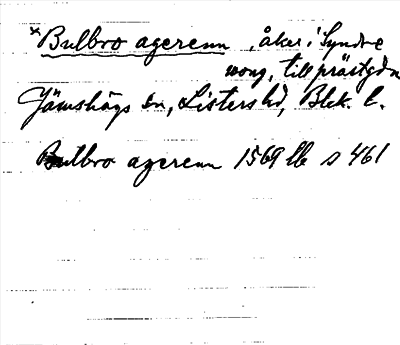 *Bulbro agerenn, åker i Syndre
wong, till prästgdn
Jämshögs sn, Listers hd, Blek. l.
Bulbro agerenn 1569 lb s 461